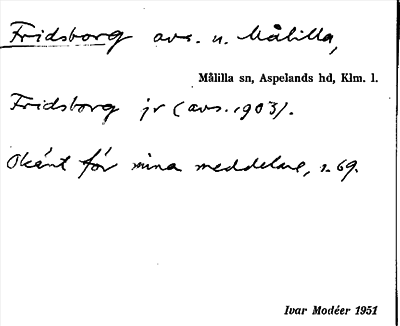 Fridsborg avs. u. Målilla,
Målilla sn, Aspelands hd, Klm. l.
Fridsborg jr (avs. 1903).
Okänt för mina meddelare, s. 69.
Ivar Modéer 1951